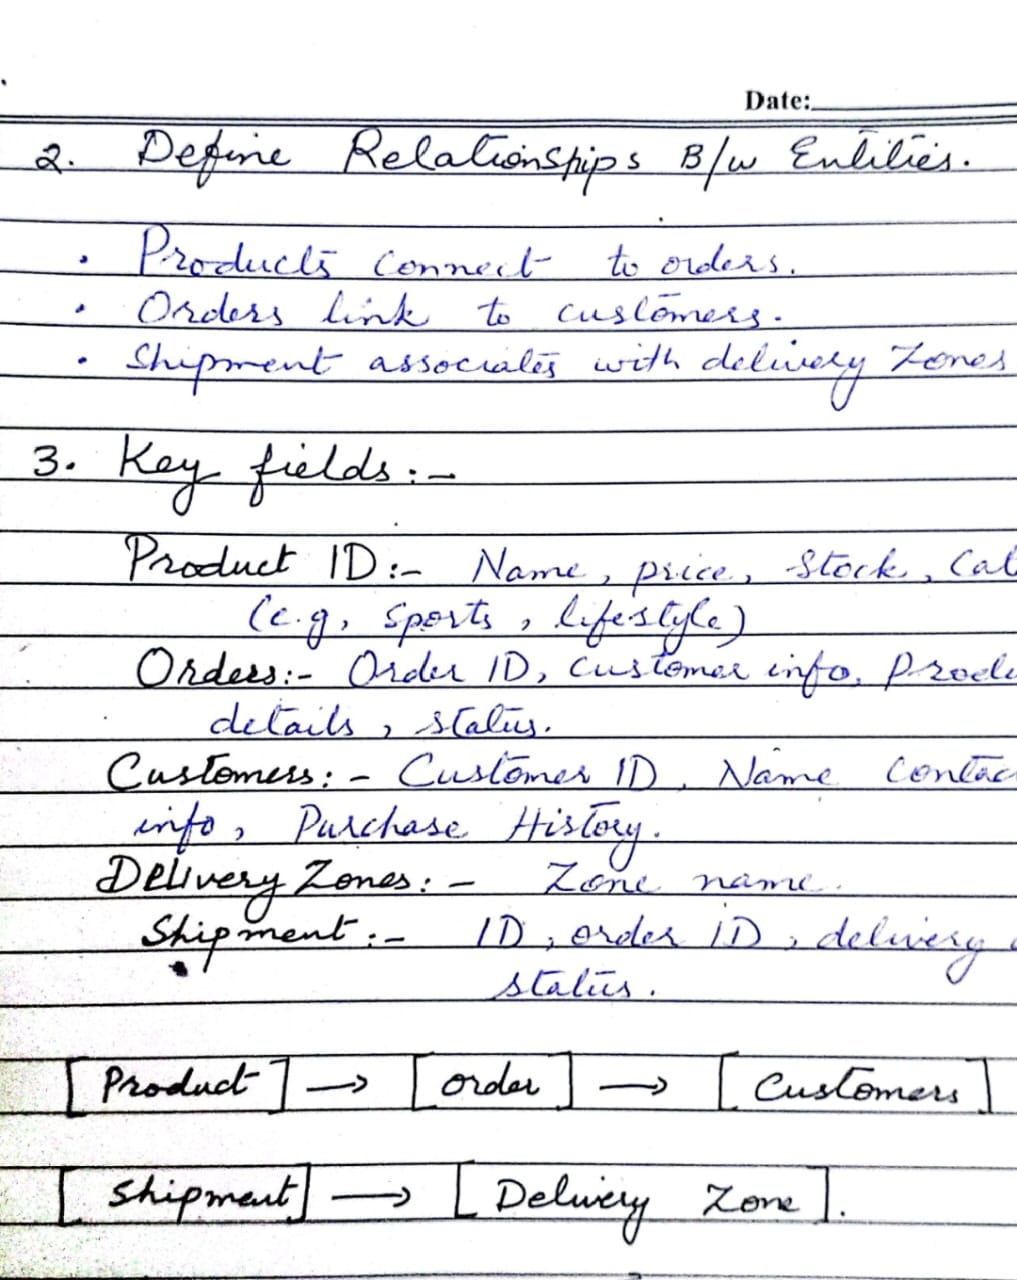 Date:
2. Define Relationships B/w Entities.
• Products connect to orders.
• Orders link to customers.
• Shipment associates with delivery Zones
3. Key fields:-
Product ID:- Name, price, Stock, Cat
(e.g, Sports, lifestyle)
Orders:- Order ID, Customer info, Produ
details, status.
Customers:- Customer ID, Name Contac
info, Purchase History.
Delivery Zones:- Zone name.
Shipment:- ID, order ID, delivery
status.
[Product] → [order] → [Customers]
[Shipment] → [Delivery Zone].